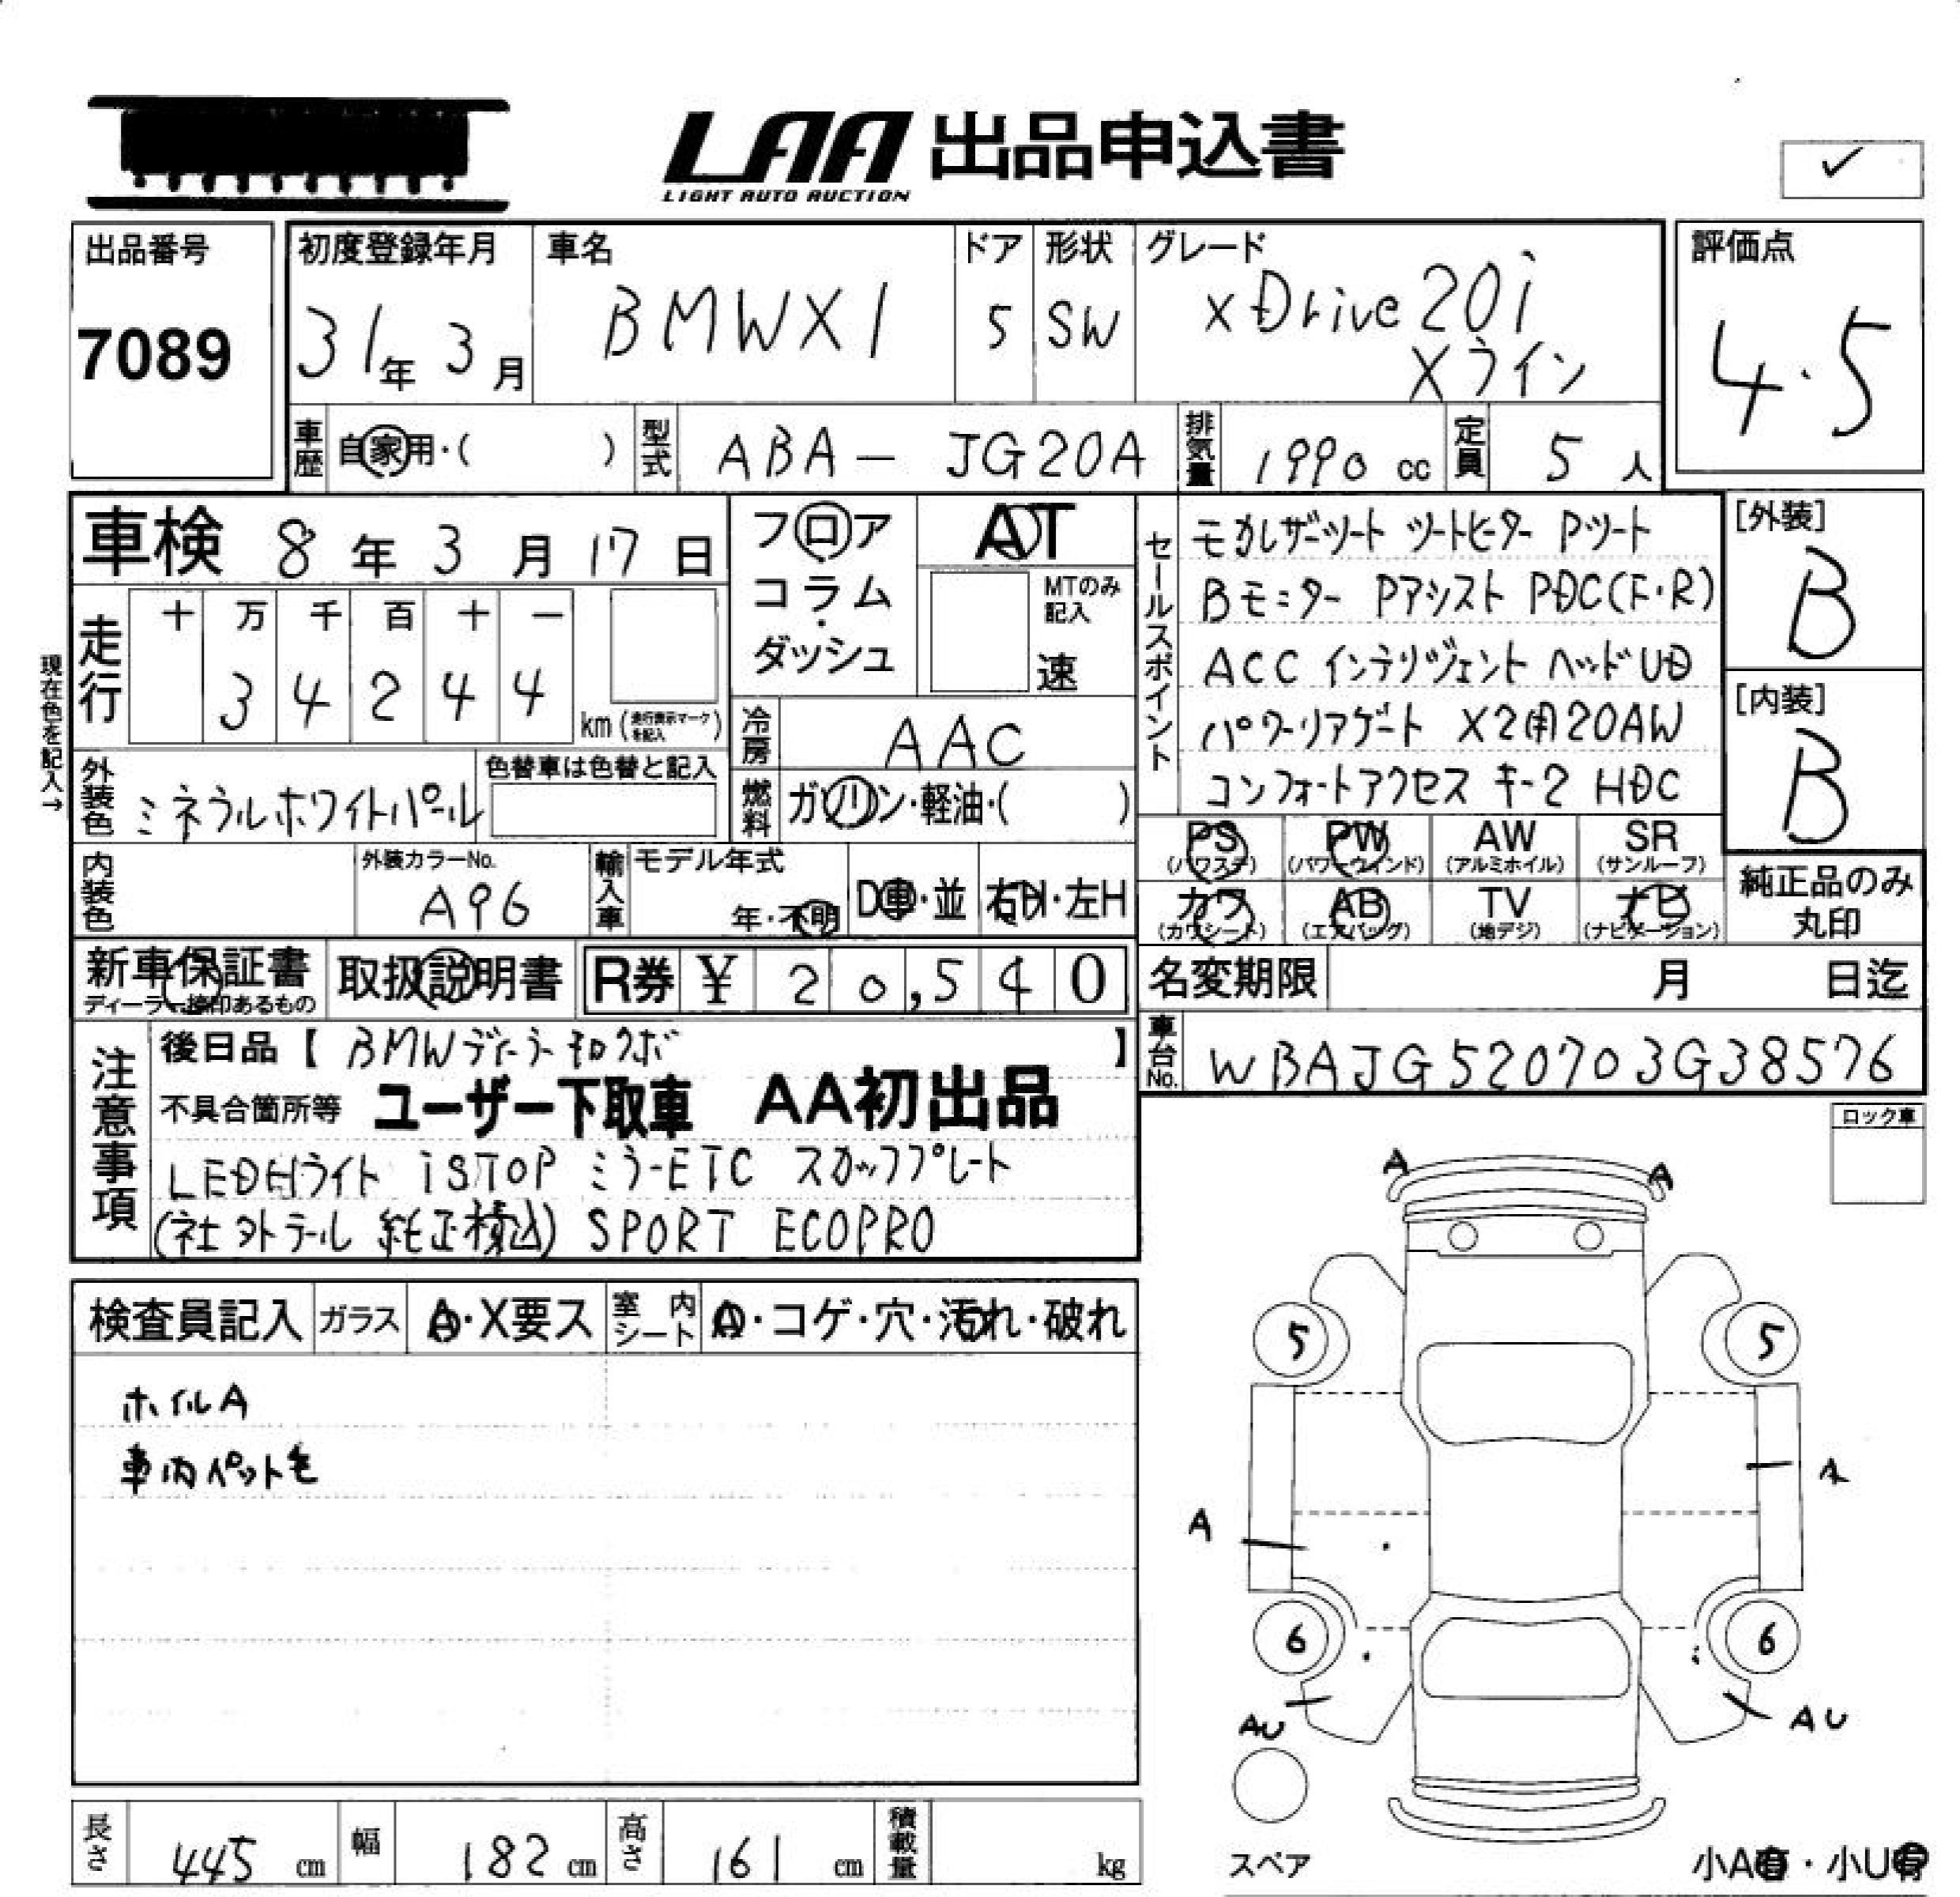 LAA 出品申込書
LIGHT AUTO AUCTION
✓
出品番号
7089
初度登録年月
31年 3月
車名
BMWX1
ドア
5
形状
SW
グレード
xDrive20i
Xライン
評価点
4.5
車歴
自家用・( )
型式
ABA-JG20A
排気量
1990 cc
定員
5 人
車検 8年 3月 17日
フロア
コラム
・
ダッシュ
AT
MTのみ
記入
速
セールスポイント
モカレザーシート シートヒーター Pシート
Bモニター Pアシスト PDC(F・R)
ACC インテリジェント ヘッドUD
パワーリアゲート X2用20AW
コンフォートアクセス キー2 HDC
[外装]
B
[内装]
B
現在色を記入→
走行
十 万 千 百 十 一
3 4 2 4 4
km(走行表示マークを記入)
冷房
AAC
外装色
ミネラルホワイトパール
色替車は色替と記入
燃料
ガソリン・軽油・( )
PS
(パワステ)
PW
(パワーウィンド)
AW
(アルミホイル)
SR
(サンルーフ)
カワ
(カワシート)
AB
(エアバッグ)
TV
(地デジ)
ナビ
(ナビゲーション)
純正品のみ
丸印
内装色
外装カラーNo.
A96
輸入車
モデル年式
年・不明
D車・並
右H・左H
新車保証書
ディーラー捺印あるもの
取扱説明書
R券 ¥ 20,540
名変期限 月 日迄
車台No.
WBAJG520703G38576
注意事項
後日品【 BMWデーラー 】
不具合箇所等 ユーザー下取車 AA初出品
LEDHライト iSTOP ミラーETC スカッフプレート
(社外テール 純正積込) SPORT ECOPRO
ロック車
検査員記入
ガラス
A・X要ス
室内シート
A・コゲ・穴・汚れ・破れ
ホイルA
車内ペット毛
A A
5 5
A
A
6 6
AU AU
スペア
小A有・小U有
長さ
445 cm
幅
182 cm
高さ
161 cm
積載量
kg